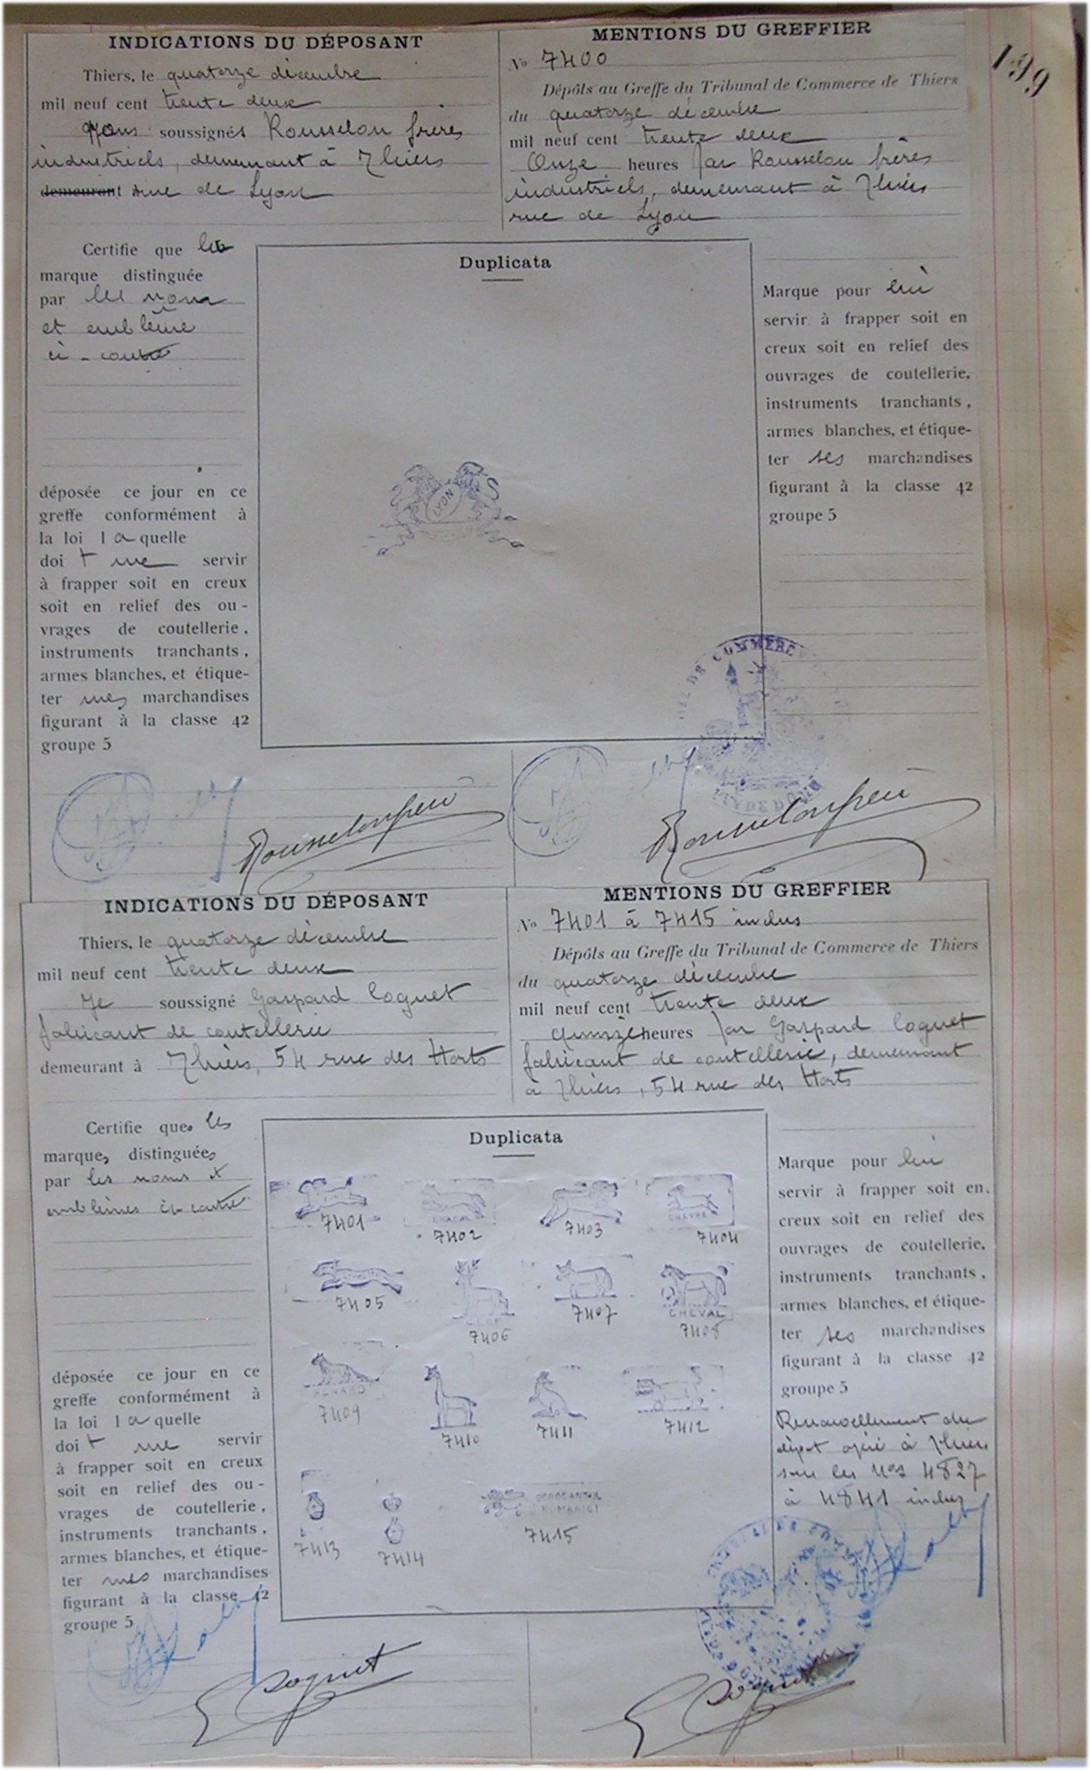 199
INDICATIONS DU DÉPOSANT
Thiers, le quatorze décembre
mil neuf cent trente deux
Nous soussignés Rousselon frères
industriels, demeurant à Thiers
demeurant rue de Lyon
Certifie que les
marque distinguée
par les noms
et emblème
ci-contre
déposée ce jour en ce
greffe conformément à
la loi laquelle
doit me servir
à frapper soit en creux
soit en relief des ou-
vrages de coutellerie,
instruments tranchants,
armes blanches, et étique-
ter mes marchandises
figurant à la classe 42
groupe 5
MENTIONS DU GREFFIER
No 7400
Dépôts au Greffe du Tribunal de Commerce de Thiers
du quatorze décembre
mil neuf cent trente deux
Onze heures par Rousselon frères
industriels, demeurant à Thiers
rue de Lyon
Duplicata
LYON
Marque pour lui
servir à frapper soit en
creux soit en relief des
ouvrages de coutellerie,
instruments tranchants,
armes blanches, et étique-
ter ses marchandises
figurant à la classe 42
groupe 5
DE COMMERCE
PUY DE DOME
Rousselon frères
Rousselon frères
INDICATIONS DU DÉPOSANT
Thiers, le quatorze décembre
mil neuf cent trente deux
Je soussigné Gaspard Coguet
fabricant de coutellerie
demeurant à Thiers, 54 rue des Horts
Certifie que les
marques distinguées
par les noms et
emblèmes ci-contre
déposée ce jour en ce
greffe conformément à
la loi laquelle
doit me servir
à frapper soit en creux
soit en relief des ou-
vrages de coutellerie,
instruments tranchants,
armes blanches, et étique-
ter mes marchandises
figurant à la classe 42
groupe 5
MENTIONS DU GREFFIER
No 7401 à 7415 inclus
Dépôts au Greffe du Tribunal de Commerce de Thiers
du quatorze décembre
mil neuf cent trente deux
quinze heures par Gaspard Coguet
fabricant de coutellerie, demeurant
à Thiers, 54 rue des Horts
Duplicata
7401
7402
7403
CHEVRE
7404
7405
CERF
7406
7407
CHEVAL
7408
RENARD
7409
7410
7411
7412
7413
7414
ROMANICI
7415
Marque pour lui
servir à frapper soit en
creux soit en relief des
ouvrages de coutellerie,
instruments tranchants,
armes blanches, et étique-
ter ses marchandises
figurant à la classe 42
groupe 5
Renouvellement du
dépôt opéré à Thiers
sous les Nos 4827
à 4841 inclus
G Coguet
G Coguet